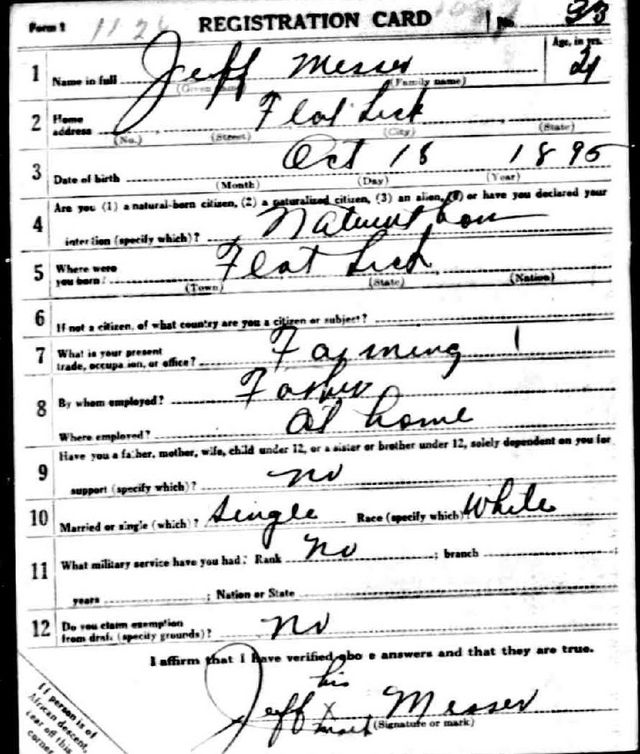 Form 1 1126 REGISTRATION CARD No. 33
Age, in yrs.
1 Name in full Jeff Messer 21
(Given name) (Family name)
2 Home address Flat Lick
(No.) (Street) (City) (State)
3 Date of birth Oct 18 1895
(Month) (Day) (Year)
Are you (1) a natural-born citizen, (2) a naturalized citizen, (3) an alien, (4) or have you declared your
4 intention (specify which)? Natural born
5 Where were you born? Flat Lick
(Town) (State) (Nation)
6 If not a citizen, of what country are you a citizen or subject?
7 What is your present trade, occupation, or office? Farming 1
8 By whom employed? Father
Where employed? at home
Have you a father, mother, wife, child under 12, or a sister or brother under 12, solely dependent on you for
9 support (specify which)? no
10 Married or single (which)? single Race (specify which)? White
11 What military service have you had? Rank no ; branch
years ; Nation or State
12 Do you claim exemption from draft (specify grounds)? no
I affirm that I have verified above answers and that they are true.
his
Jeff x Messer
mark (Signature or mark)
If person is of
African descent,
tear off this
corner